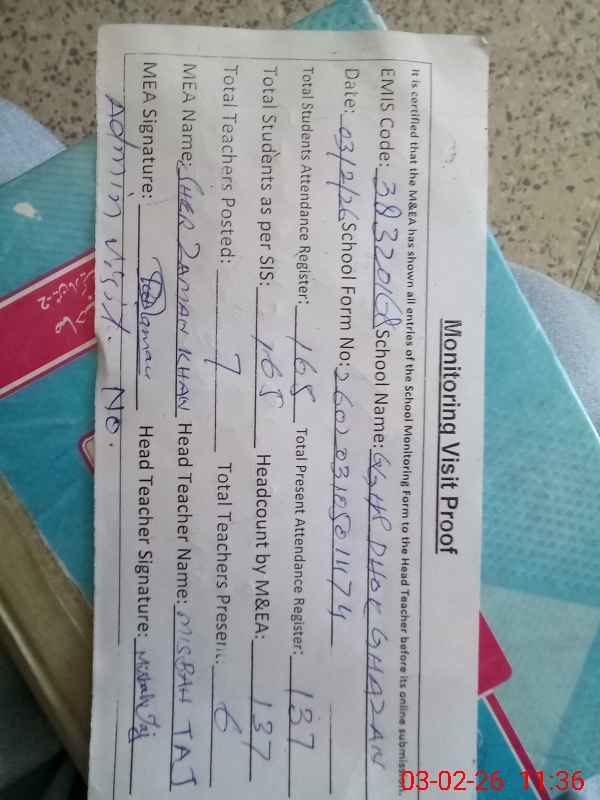 Monitoring Visit Proof
It is certified that the M&EA has shown all entries of the School Monitoring Form to the Head Teacher before its online submission
EMIS Code: School Name: DHOK
Date: 03/2/26 School Form No: 260203105011474
Total Students Attendance Register: 165 Total Present Attendance Register: 137
Total Students as per SIS: 165 Headcount by M&EA: 137
Total Teachers Posted: 7 Total Teachers Present: 6
MEA Name: SHER ZAMAN KHAN Head Teacher Name: MISBAH TAJ
MEA Signature: Head Teacher Signature: Misbah Taj
Admin visit. No.
03-02-26 11:36